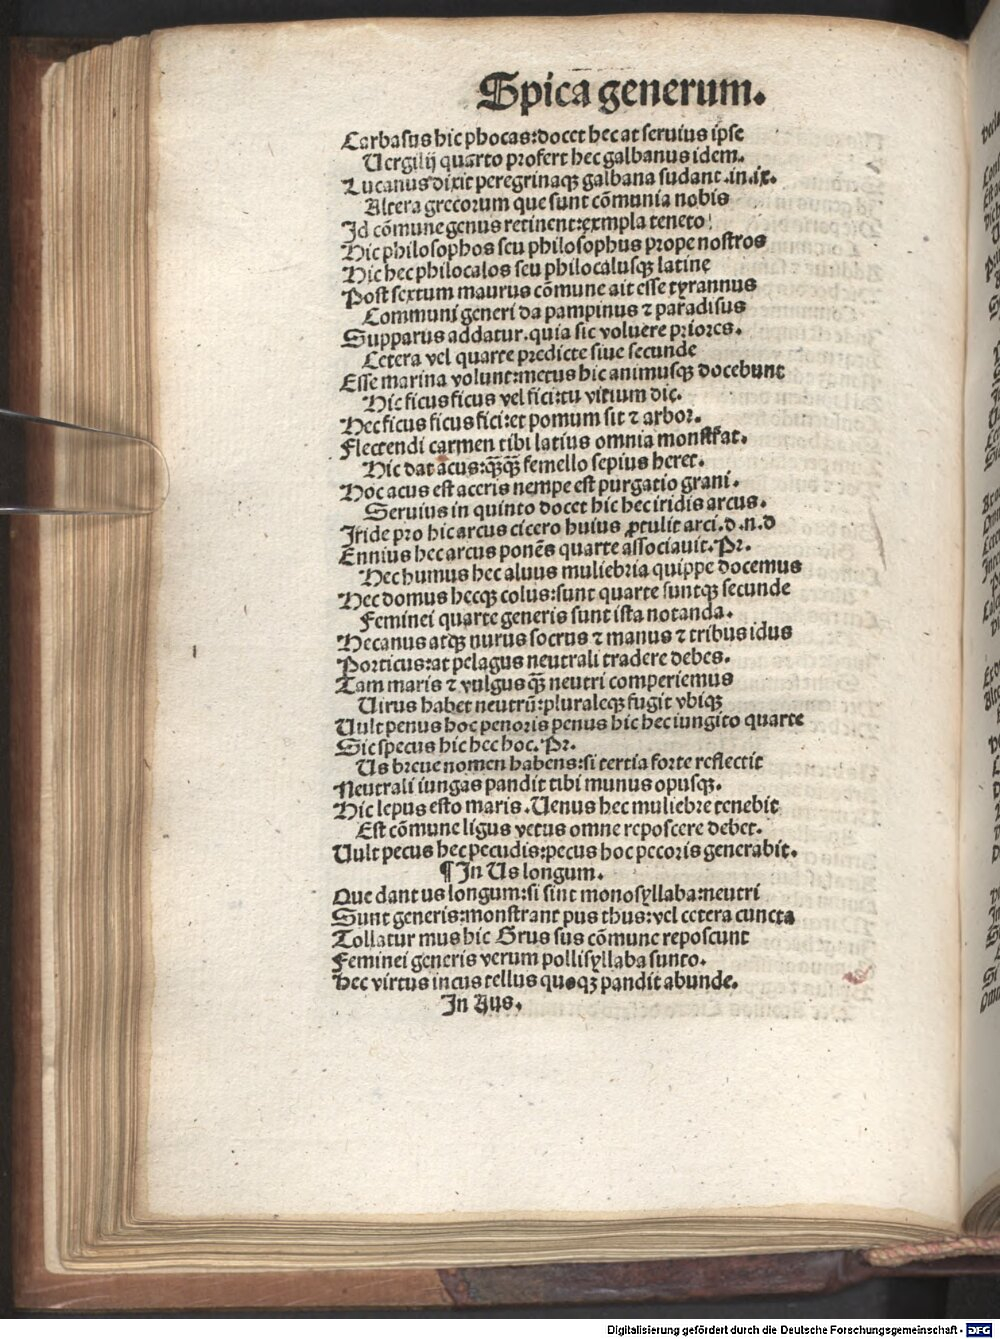 Spica generum.
Carbasus hic phocas:docet hec at seruius ipse
Uergilij quarto profert hec galbanus idem.
Lucanus dixit peregrinaqꝫ galbana sudant .in.ix.
Altera grecorum que sunt cōmunia nobis
Id cōmune genus retinent:exmpla teneto
Hic philosophos seu philosophus prope nostros
Hic hec philocalos seu philocalusqꝫ latine
Post sextum maurus cōmune ait esse tyrannus
Communi generi da pampinus ⁊ paradisus
Supparus addatur.quia sic voluere priores.
Cetera vel quarte predicte siue secunde
Esse marina volunt:metus hic animusqꝫ docebunt
Hic ficus ficus vel fici:tu vitium dic.
Hec ficus ficus fici:et pomum sit ⁊ arbor.
Flectendi carmen tibi latius omnia monstrat.
Hic dat acus:qꝫ̄qꝫ̄ femello sepius heret.
Hoc acus est aceris nempe est purgatio grani.
Seruius in quinto docet hic hec iridis arcus.
Iride pro hic arcus cicero huius ꝓtulit arci.d.n.d
Ennius hec arcus ponēs quarte associauit.Pr.
Hec humus hec aluus muliebria quippe docemus
Hec domus hecqꝫ colus:sunt quarte suntqꝫ secunde
Feminei quarte generis sunt ista notanda.
Hec anus atqꝫ nurus socrus ⁊ manus ⁊ tribus idus
Porticus:at pelagus neutrali tradere debes.
Tam maris ⁊ vulgus qꝫ̄ neutri comperiemus
Uirus habet neutrū:pluraleqꝫ fugit vbiqꝫ
Uult penus hoc penoris penus hic hec iungito quarte
Sic specus hic hec hoc.Pr.
Us breue nomen habens:si tertia forte reflectit
Neutrali iungas pandit tibi munus opusqꝫ.
Hic lepus esto maris .Uenus hec muliebre tenebit
Est cōmune ligus vetus omne reposcere debet.
Uult pecus hec pecudis:pecus hoc pecoris generabit.
¶ In Us longum.
Que dant us longum:si sint monosyllaba:neutri
Sunt generis:monstrant pus thus:vel cetera cuncta
Tollatur mus hic Grus sus cōmune reposcunt
Feminei generis verum pollisyllaba sunto.
Hec virtus incus tellus quoqꝫ pandit abunde.
In Aus.
Digitalisierung gefördert durch die Deutsche Forschungsgemeinschaft - DFG